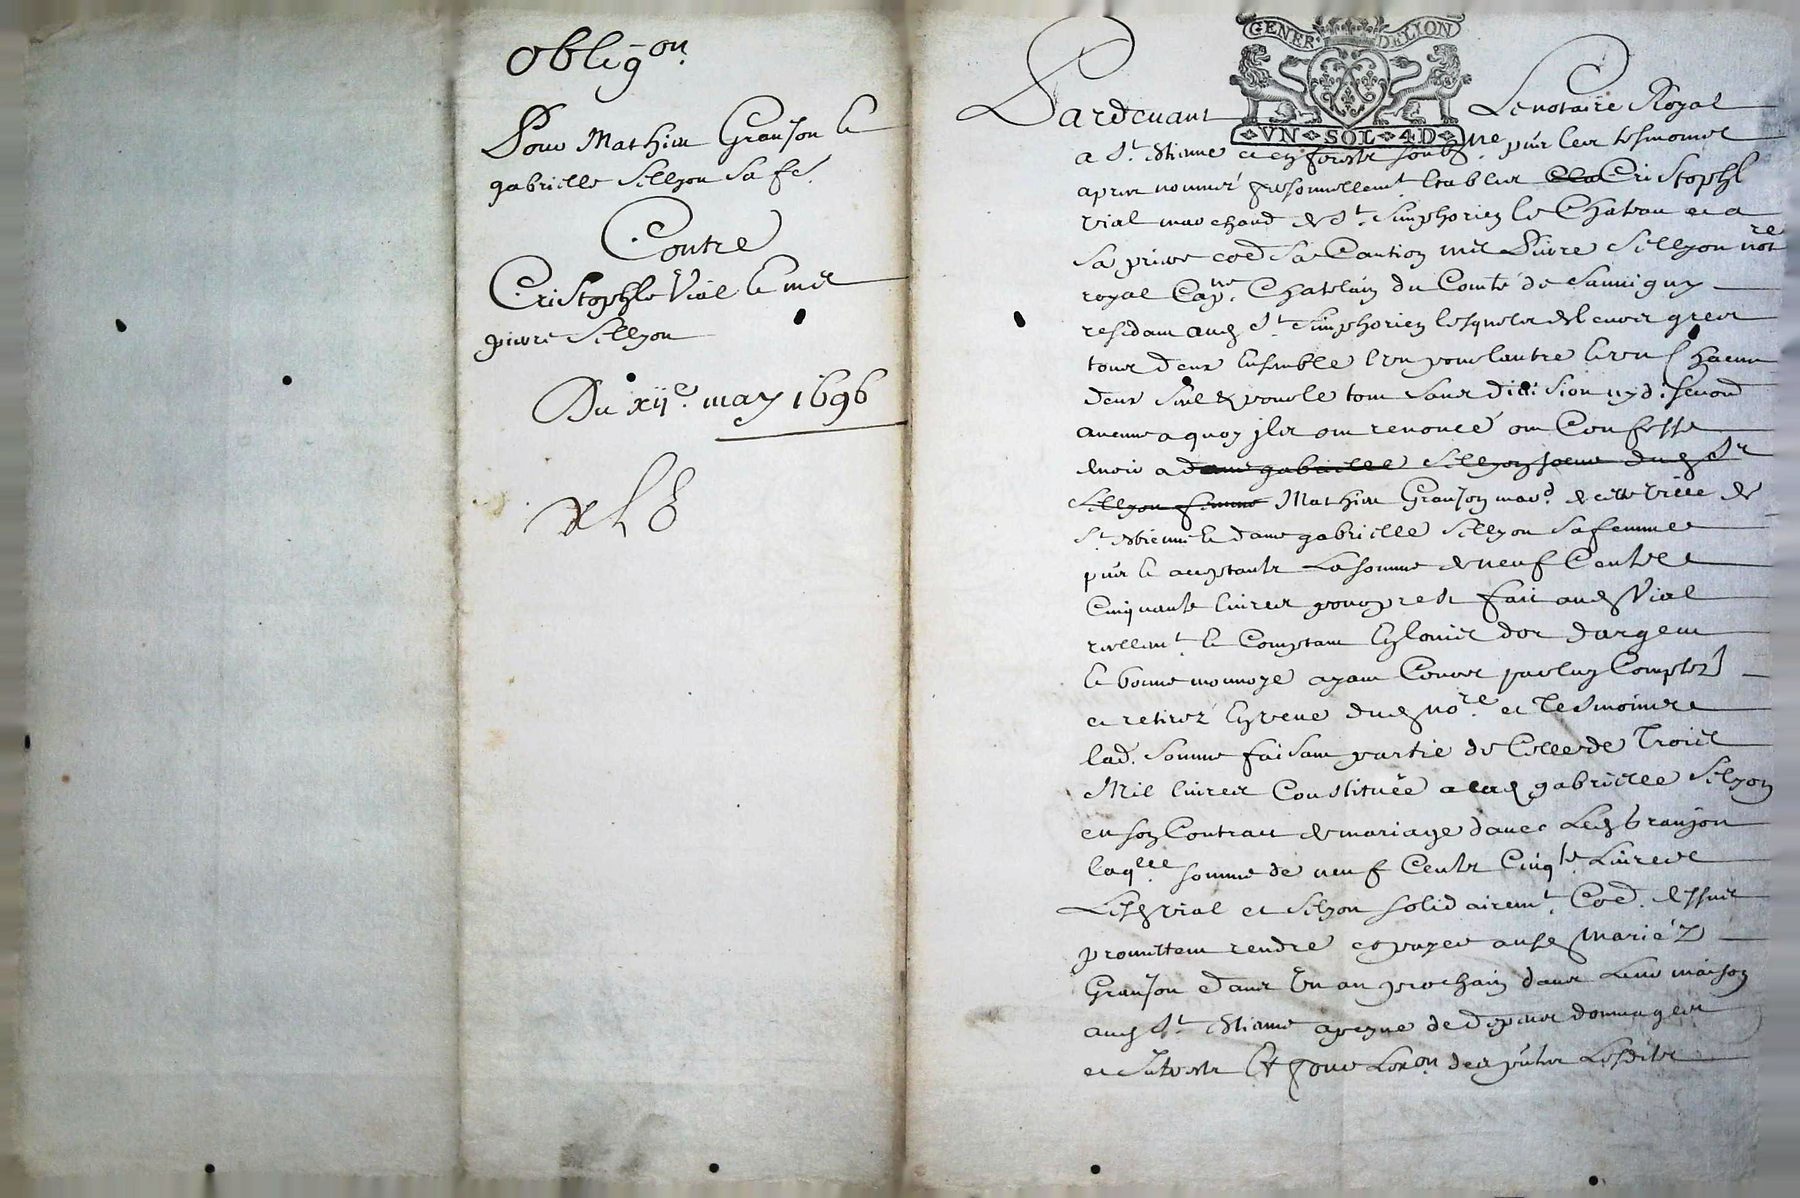 Oblig^on.
Pour Mathieu Granjon &
gabrielle Sillyon sa fe.
Contre
Cristophle Vial & me
pierre Sillyon
Du xij^e. may 1696
GENER DE LION
VN SOL 4D
Pardevant Le notaire Royal
a St. Estienne et en forestz soubz^ne. pnts les tesmoins
apres nommés personnellemt establis Cristophle
vial marchand de St. Simphorien le Chateau et a
sa priere coe sa Caution me Pierre Sillyon not^re
royal Cap^ne. Chatelain du Comté de
residant aud St. Simphorien lesquels de leur grez
tous deux ensemble l'un pour lautre & un Chacun
deux seul & pour le tout sans division ny discution
aucune a quoy ils ont renoncé ont Confessé
devoir a dame gabrielle Sillyon soeur dud Sr
Sillyon femme Mathieu Granjon mard de cette ville de
St. Estienne & dame gabrielle Sillyon sa femme
pnts & acceptants La somme de neuf Centz
Cinquante livres pour prest fait aud Vial
reellemt. & Comptant en louis dor dargent
& bonne monnoye ayant Cours par luy Comptez
et retirez en veue dud no^re et Tesmoins
lad. somme faisant partie de Celle de Trois
Mil livres Constituée a lad gabrielle Silyon
en son Contract de mariage davec Led Granjon
laq^lle somme de neuf Centz Cinq^te. Livres
Lesd vial et Silyon solidairemt. Coe. dessus
promettent rendre et payer ausd Mariéz
Granjon dans Un an prochain dans Leur maison
aud St. Estienne a peyne de despens dommages
et Interestz Et pour Lex^on des pntes Lesdites